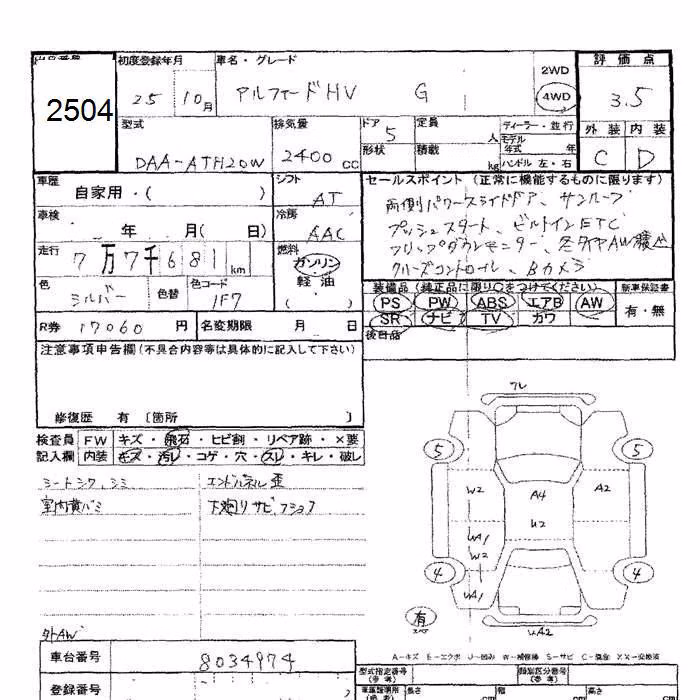 出品番号 初度登録年月 車名・グレード 2WD 評価点
2504 25 10月 アルファードHV G 4WD 3.5
型式 排気量 ドア 5 定員 人 ディーラー・並行 外装 内装
DAA-ATH20W 2400CC 形状 積載 kg モデル年式 年 ハンドル 左・右 C D
車歴 自家用・( ) シフト AT セールスポイント (正常に機能するものに限ります)
両側パワースライドドア、サンルーフ
車検 年 月(日) 冷房 AAC プッシュスタート、ビルトインETC
走行 7万7千681km 燃料 ガソリン・軽油・( ) フリップダウンモニター、
クルーズコントロール、Bカメラ
色 シルバー 色替 色コード 1F7
装備品 (純正品に限り○をつけてください) 新車保証書
PS PW ABS エアB AW 有・無
SR ナビ TV カワ
R券 17060円 名変期限 月 日 後日品
注意事項申告欄(不具合内容等は具体的に記入して下さい)
修復歴 有 〔箇所 〕
検査員 FW キズ・飛石・ヒビ割・リペア跡・×要
記入欄 内装 キズ・汚レ・コゲ・穴・スレ・キレ・破レ
シートシワ、シミ エンドパネル歪
室内黄バミ 下廻りサビ
フレ
5 5
W2 A4 A2
U2
UA1
W2
4 4
UA1
有
UA2
外AW
A-キズ E-エクボ U-凹み W-補修跡 S-サビ C-腐食 XX-交換済
車台番号 8034974
型式指定番号(参考) 類別区分番号(参考)
登録番号 長さ cm 幅 cm 高さ cm